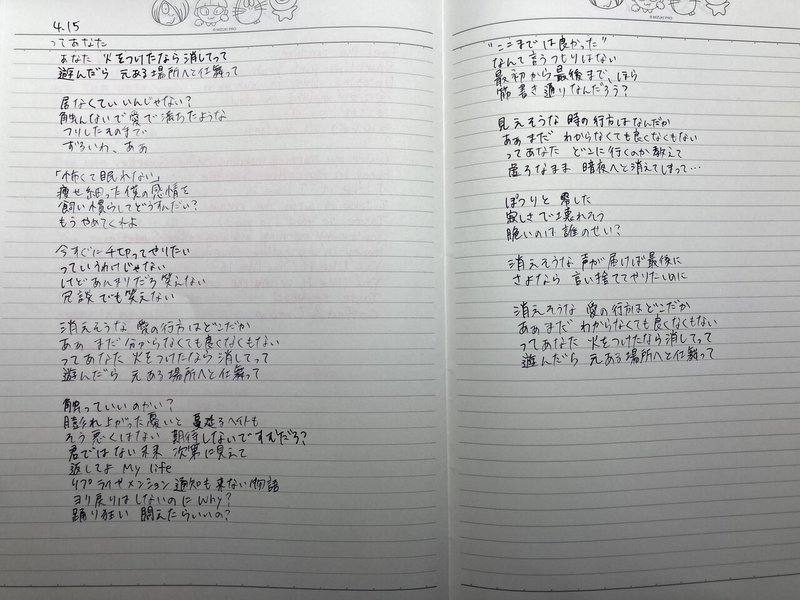 4.15
ってあなた
あなた 火をつけたなら消してって
遊んだら 元ある場所へと仕舞って
居なくていいんじゃない?
触んないで愛で満ちたような
フリしたそのまで
ずるいわ、ああ
「怖くて眠れない」
痩せ細った僕の感情を
飼い慣らしてどうすんだい?
もうやめてくれよ
今すぐに千切ってやりたい
っていうわけじゃない
けどあんまりだろ笑えない
冗談でも笑えない
消えそうな 愛の行方はどこだか
あぁ まだ 分からなくても良くなくもない
ってあなた 火をつけたなら消してって
遊んだら 元ある場所へと仕舞って
触っていいのかい?
膨れ上がった憂いと 蔓延るヘイトも
そう悪くはない 期待しないで済むだろ?
君ではない未来 次第に見えて
返してよ My life
リプライやメンション 通知も来ない物語
ヨリ戻りはしないのに Why?
踊り狂い 悶えたらいいの?
©MIZUKI PRO
©MIZUKI PRO
"ここまでは良かった"
なんて言うつもりはない
最初から最後まで、ほら
筋書き通りなんだろう?
見えそうな 時の行方はなんだか
あぁ まだ わからなくても良くなくもない
ってあなた どこに行くのか教えて
虚ろなまま 暗夜へと消えてしまって…
ぽつりと 零した
寂しさで壊れそう
脆いのは 誰のせい?
消えそうな 声が届けば最後に
さよなら 言い捨ててやりたいのに
消えそうな 愛の行方はどこだか
あぁ まだ わからなくても良くなくもない
ってあなた 火をつけたなら消してって
遊んだら 元ある場所へと仕舞って